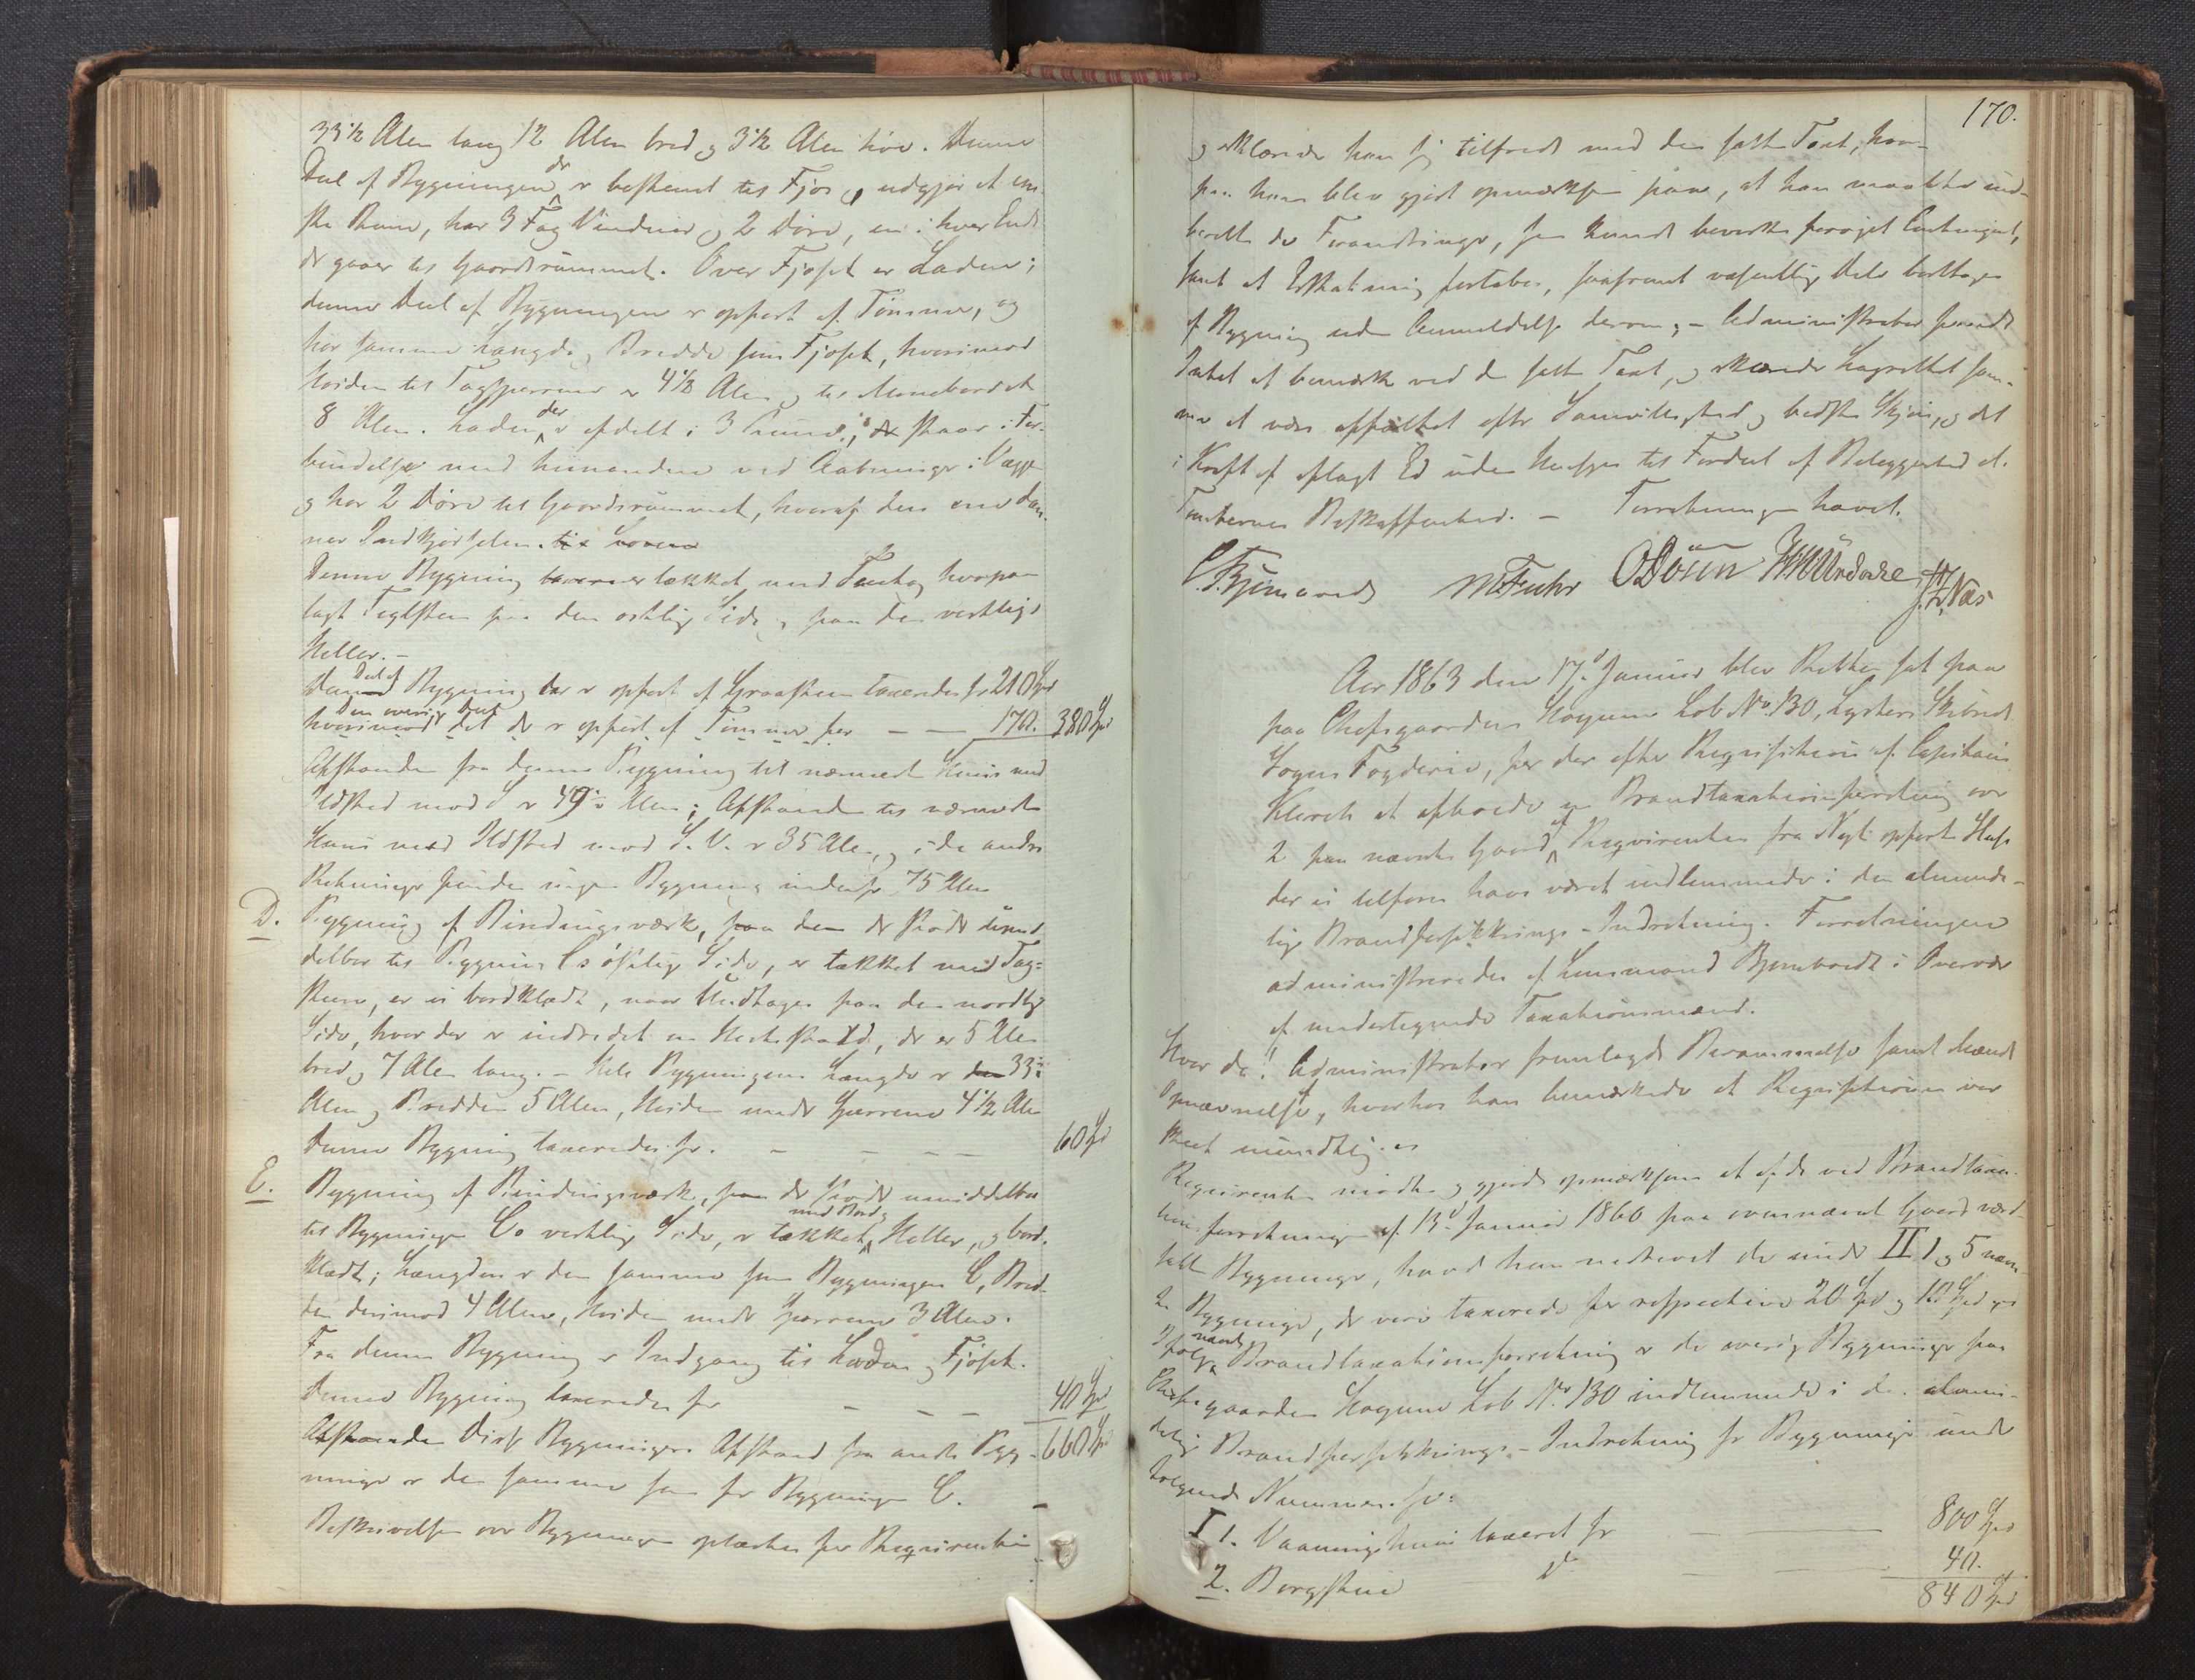 33 1/2 Alen lang 12 Alen bred og 3 1/2 Alen høi. Denne
Deel af Bygningen der er bestemt til Fjøs og udgjør et en-
kelt Rum, har 3 Fag Vinduer og 2 Døre, en i hver Ende
der gaaer til Gaardsrummet. Over Fjøset er Laden;
denne Deel af Bygningen er opført af Tømmer, og
har samme Længde og Bredde som Fjøset, hvorimod
Høiden til Tagsperrene er 4 1/2 Alen og til Mønebordet
8 Alen. Laden der er afdelt i 3 Rum, staar i For-
bindelse med hinanden ved Aabninger i Vægge
og har 2 Døre til Gaardsrummet, hvoraf den ene dan-
ner Indkjørselen. til Loven
Denne Bygning er tækket med hvorpaa
lagt Teglsteen paa den østlige Side og paa den vestlige
Heller.-
Den Deel af Bygning der er opført af Graasteen taxeredes for 210 Spd
hvorimod Den øvrige Deel det der er opført af Tømmer for — — 170. 380 Spd
Afstanden fra denne Bygning til nærmeste Huus med
Ildsted mod S er 49 1/2 Alen; Afstanden til nærmeste
Huus med Ildsted mod S. V. er 35 Alen, og i de andre
Retninger findes ingen Bygning indenfor 75 Alen
D. Bygning af Bindingsværk, der støder umid-
delbar til Bygning Cs østlige Side, er tækket med Tag-
steen, er ei bordklædt, naar Undtages paa den nordlige
Side, hvor der er indredet en Hestestald, der er 5 Alen
bred og 7 Alen lang. - Hele Bygningens Længde er 33 1/2
Alen og Bredden 5 Alen, Høiden under Sperrene 4 1/2 Alen
Denne Bygning taxeredes for. - - - - 60 Spd
E. Bygning af Bindingsværk, der støder umiddelbar
til Bygningen Cs vestlige Side, er tækket med Bord og Heller, og bord-
klædt; Længden er den samme som Bygningen C, Bred-
den derimod 4 Alen, Høiden under Sperrene 3 Alen.
Fra denne Bygning er Indgang til Laden og Fjøset.
Denne Bygning taxeredes for - - - 40 Spd
Afstanden Disse Bygningers Afstand fra andre Byg- 660 Spd
ninger er den samme som for Bygningen C.
Beskrivelsen over Bygningen oplæstes for Requirenten
170.
og erklærede han sig tilfreds med den satte Taxt, hvor-
paa han blev gjort opmærksom paa, at han maatte ind-
berette de Forandringer, som kunde bevirke forøget Contingent,
samt at Erstatning fortabes, saafremt væsentlige Dele borttages
af Bygning uden Anmeldelse derom; - Administrator fandt
Intet at bemærke ved den satte Taxt, og erklærede Lagrettet sam-
me at være affattet efter Samvittighed og bedste Skjøn, og det
i Kraft af aflagt Ed uden Hensyn til Fordeel af Beliggenhed el.
Tomternes Beskaffenhed. - Forretningen hævet.
MFuhr ODøsen J. H. Næs
Aar 1863 den 17de Januar blev Retten sat paa
paa Chefsgaarden Hougum Løb No. 130, Lysters Skibrede
Sogns Fogderie, for der efter Requisition af Capitain
Klerck at afholde en Brandtaxationsforretning over
2 paa nævnte Gaard af Requirenten fra Nyt opførte Huse
der ei tilforn have været indlemmede i den alminde-
lige Brandforsikkrings-Indretning. Forretningen
administreredes af Lensmand i
af undertegnede Taxationsmænd.
Hvor da! Administrator fremlagde Berammelse samt Mænds
Opnævnelse, hvorhos han bemærkede at Requisitionen var
skeet mundtlig.
Requirenten mødte og gjorde opmærksom at af de ved Brandtaxa-
tionsforretningen af 13de Januar 1860 paa ovennævnte Gaard værd-
satte Bygninger, havde han nedrevet de under II 1 og 5 nævn-
te Bygninger, der vare taxerede for respective 20 Spd og 10 Spd
Ifølge nævnte Brandtaxationsforretning er de øvrige Bygninger paa
Chefsgaarden Hougum Løb No. 130 indlemmede i den almin-
delige Brandforsikkrings-Indretning for Bygninger under
følgende Nummere for:
I 1. Vaaningshuus taxeret for — — 800 Spd
2. Borgstue do — — 40.
840 Spd